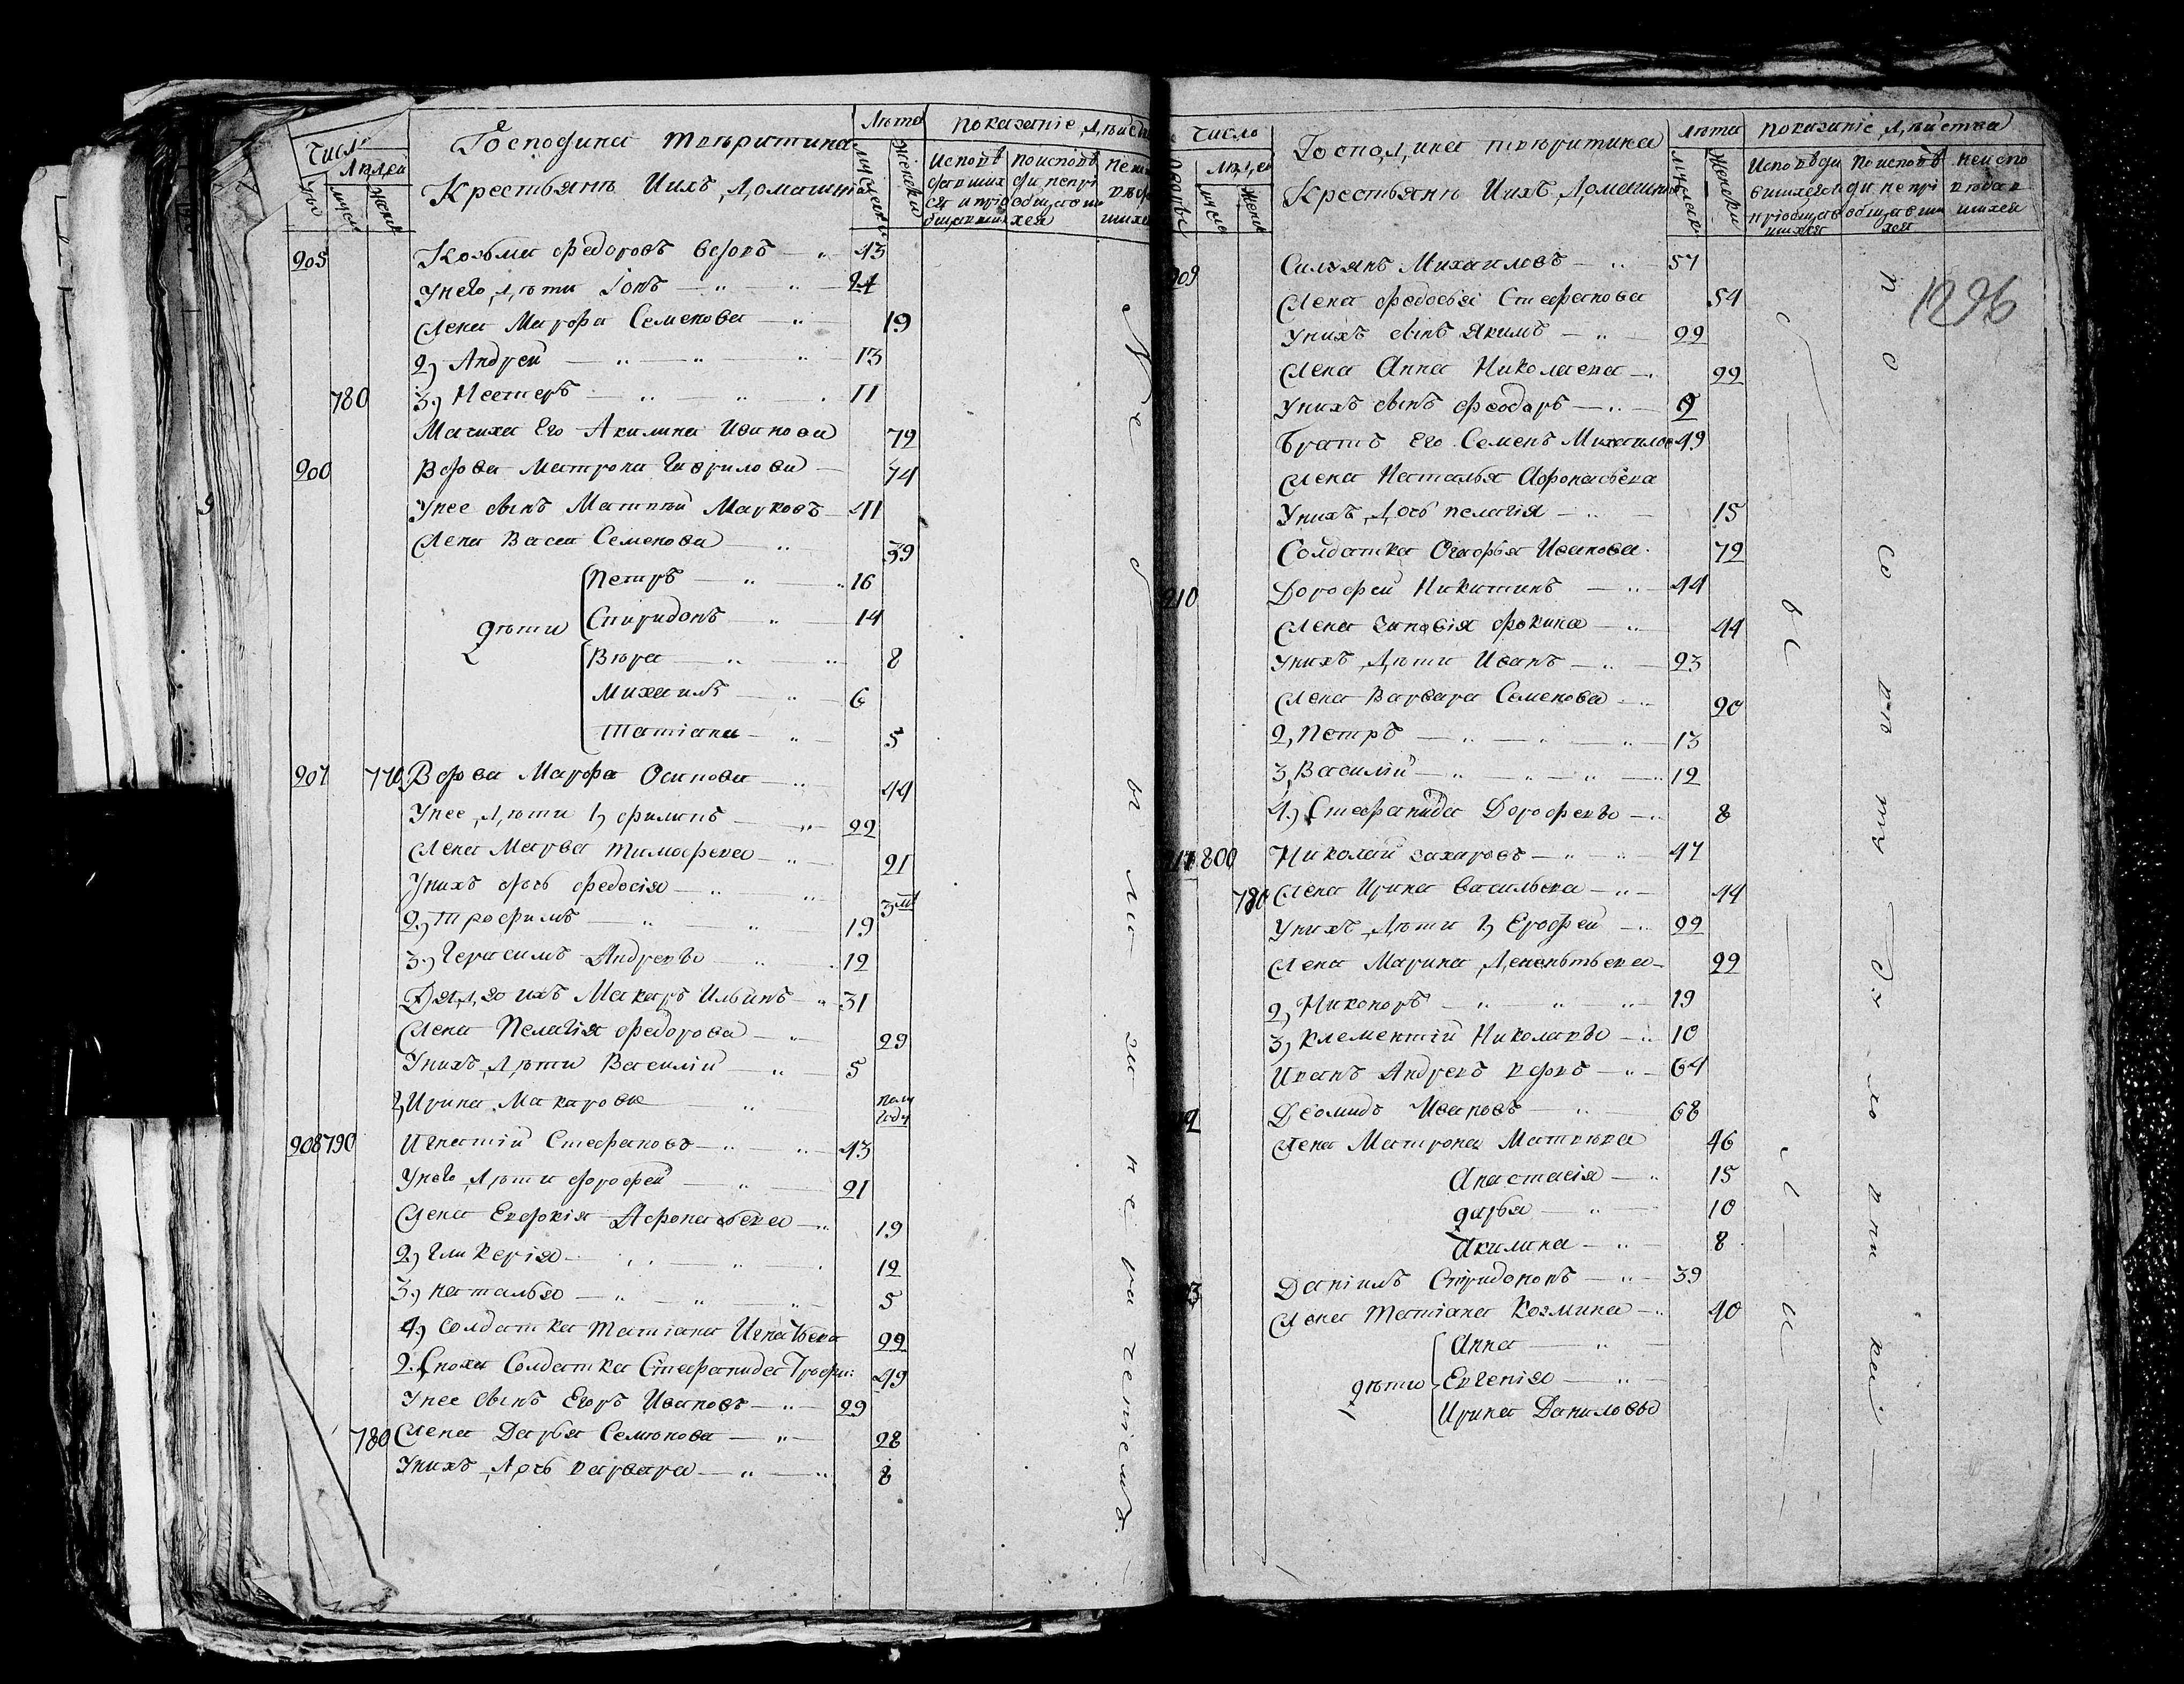 Число
Людей
муск
женск
Господина тверитина
Крестьянъ Иихъ Домашнiя
Лѣта
мужеска
женска
показанiе Дѣйст
Исповѣ
дав ших
ся и прiо
бщавши
поисповѣ
ди непрi
общавши
хся
205 Козьма федоровъ вдовъ 43
Унего дѣти Iовъ 24
жена Марфа Семенова 19
2) Андрей 13
780 3) Нестеръ 11
Мачиха Его Акилина Иванова 72
206 Вдова Матрона Гаврилова 74
Унее сынъ Матвѣй Марковъ 41
жена Васса Семенова 39
дѣти
Петръ 16
Спиридонъ 14
Вѣра 8
Михаилъ 6
Татiана 5
207 770 Вдова Марфа Осипова 44
Унее дѣти 1) филипъ 22
жена Марѳа тимофеева 21
Унихъ дочь федосiя 3 м
2) трофимъ 19
3) Герасимъ Андреевъ 12
Дядя ихъ Макаръ Ильинъ 31
жена Пелагiя федорова 29
Унихъ дѣти Василiй 5
2) Ирина Макарова пол году
208 790 Игнатiй Стефановъ 43
Унего дѣти дорофей 21
жена Евдокiя Афонасьева 19
2) Гликерiя 12
3) наталья 5
4) солдатка татiана Игнатьева 22
2. Сноха Солдатка Стефанида Трофи: 49
Унее Сынъ Егоръ Ивановъ 29
780 жена Дарья Семенова 28
Унихъ дочь варвара 8
Не было за нерачениемъ
Число
Дворы
Людей
муск
женск
Господина тверитина
Крестьянъ Иихъ Домашнiя
лѣта
мужеска
женска
показанiе Дѣйства
Исповѣди
вшихся и
прiобщав
шихся
поисповѣ
ди непрi
общавши
хся
неиспо
вѣдав
шихся
1296
209 Силуянъ Михаиловъ 57
жена федосья Стефанова 54
Унихъ сынъ Якимъ 22
жена Анна Николаева 22
Унихъ сынъ феодоръ 2
братъ его Семенъ Михаилов 49
жена Наталья Афонасьева
Унихъ дочь пелагiя 15
Солдатка Агафья Иванова 72
210 Дорофей Никитинъ 44
жена Зиновiя фокина 44
Унихъ дѣти Иванъ 23
жена Варвара Семенова 20
2, Петръ 13
3, Василiй 12
4) Стефанида Дорофевы 8
211 800 Николай захаровъ 47
780 жена Ирина васильева 44
Унихъ дѣти 1) Ерофей 22
жена Марина Леонтьева 22
2, Никоноръ 19
3, Клементiй Николаевы 10
Иванъ Андреевъ вдовъ 64
2 Деомидъ Ивановъ 68
жена Матрона Матвѣева 46
Анастасiя 15
дарья 10
Акилина 8
3 Данiилъ Спиридоновъ 39
жена Татiана Козмина 40
дѣти
Анна
Евгенiя
Ирина Даниловы